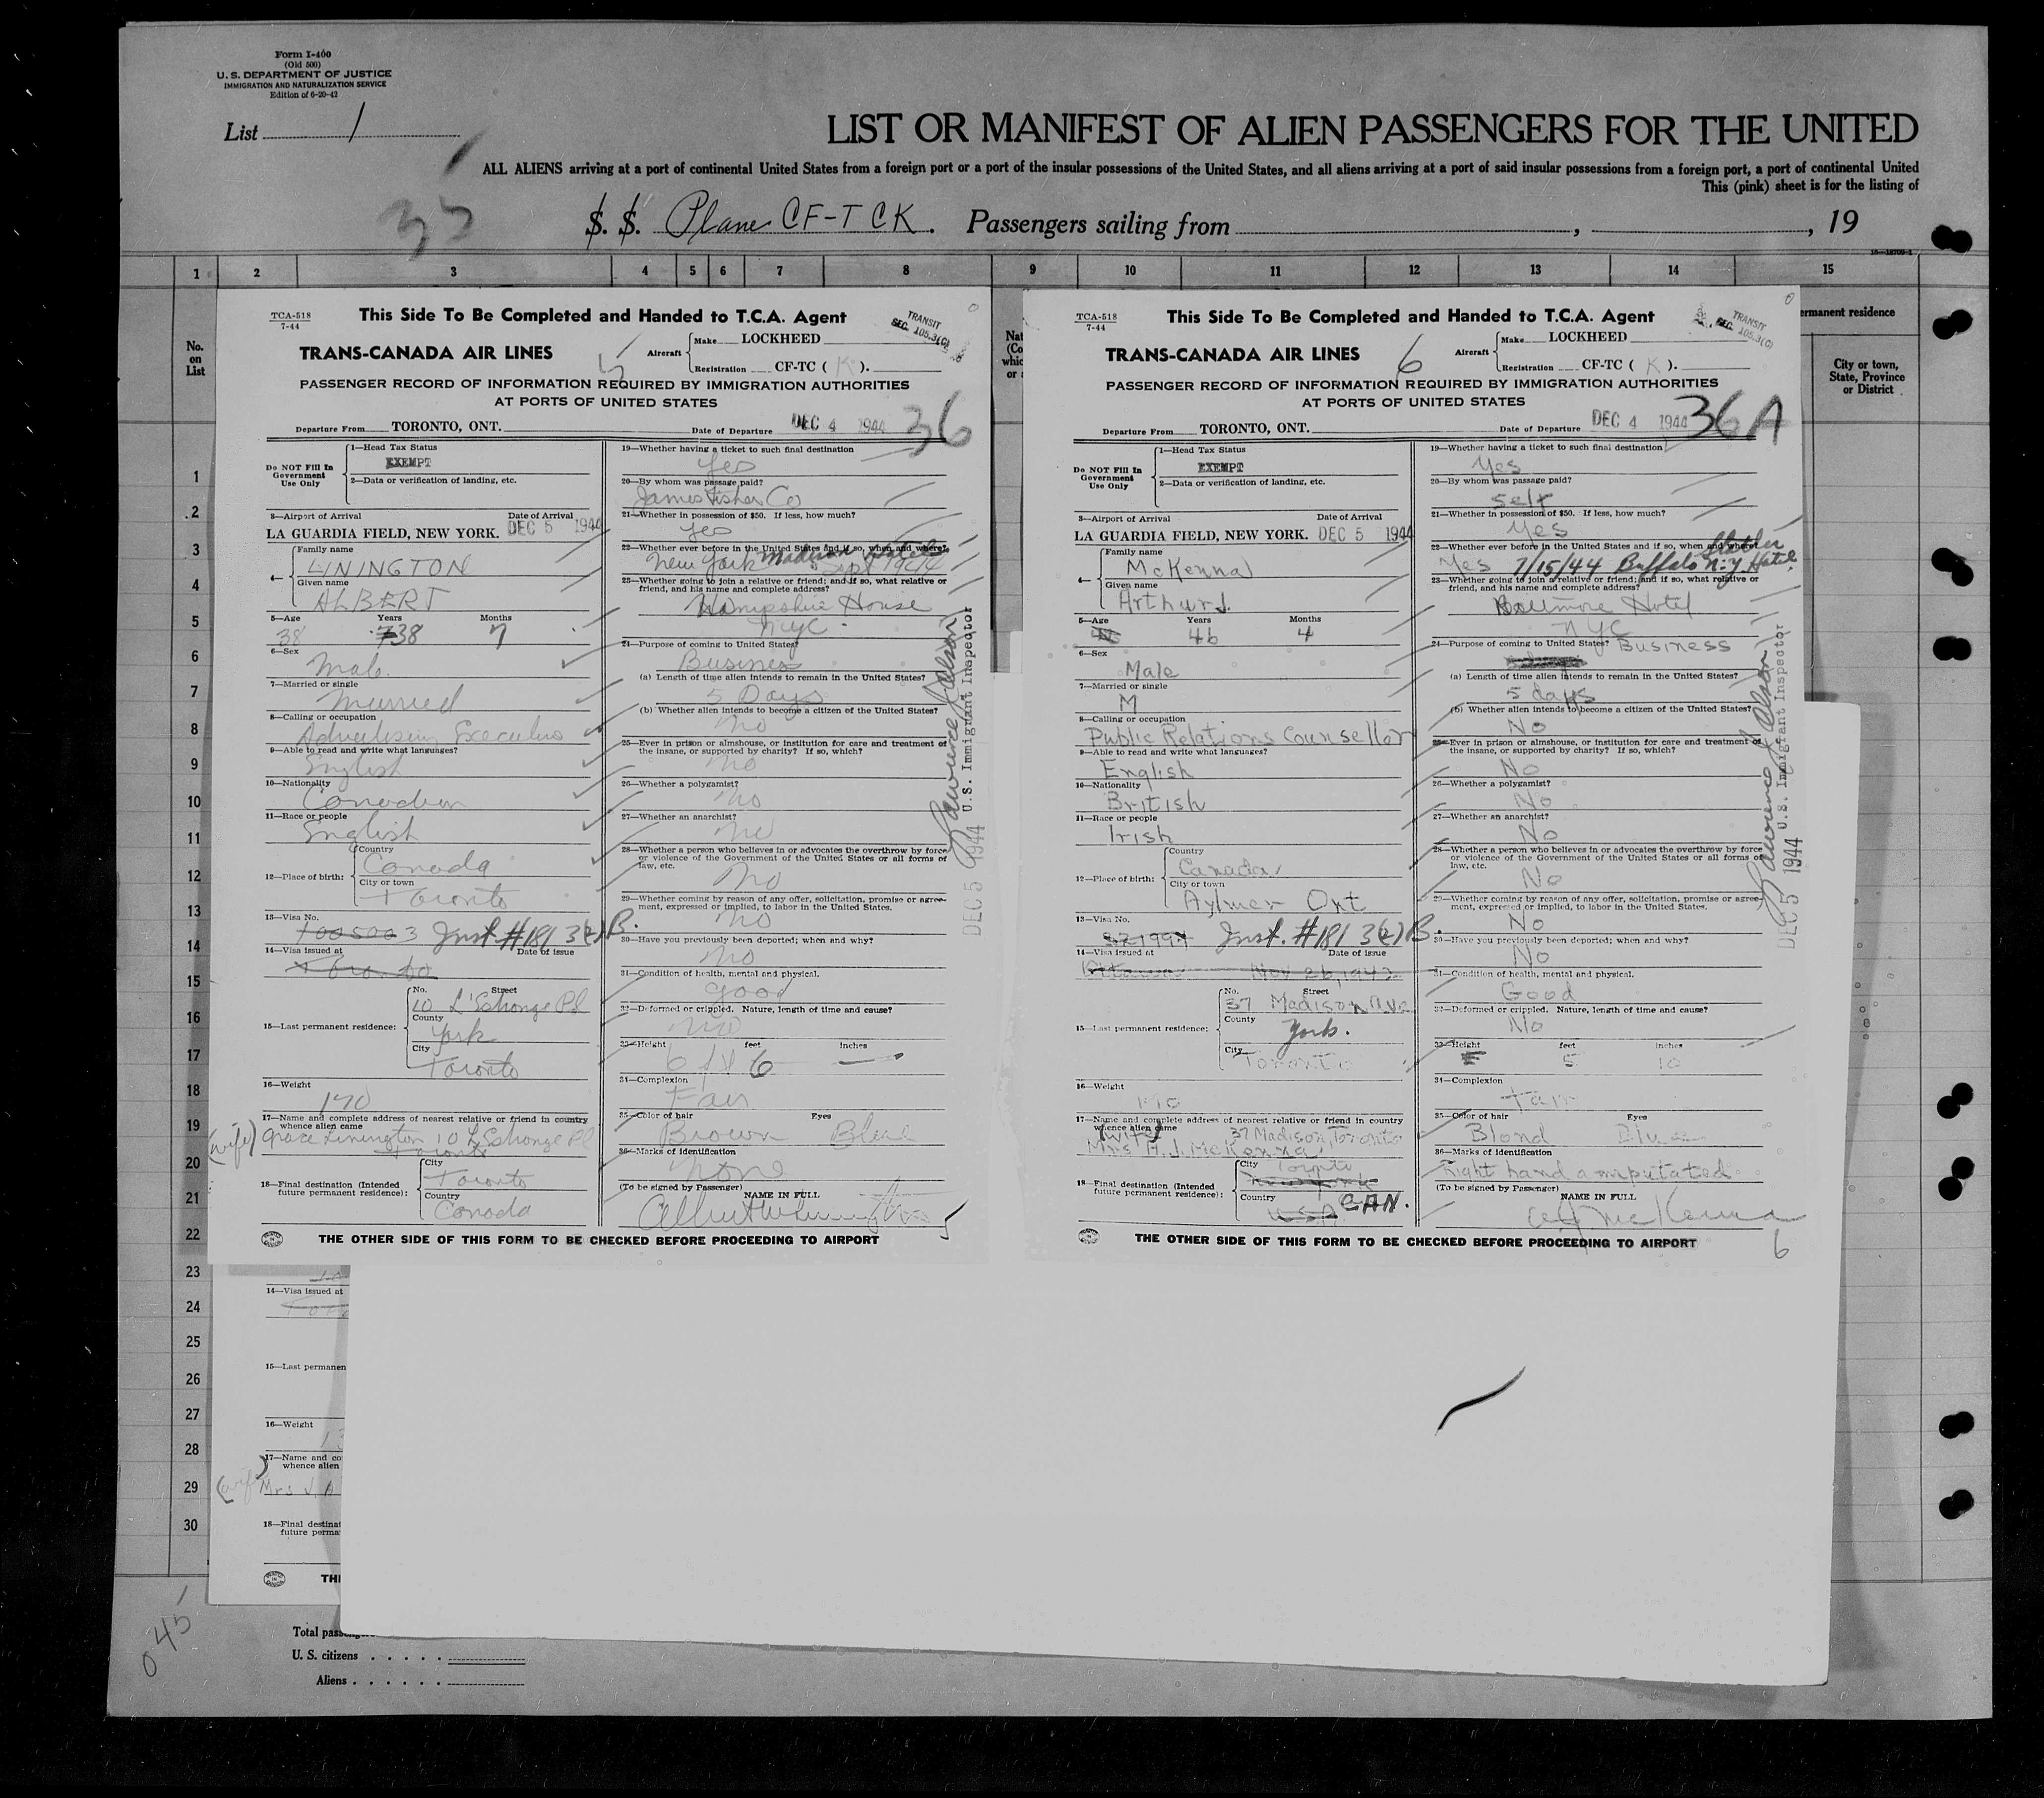 Form I-400
(Old 500)
U. S. DEPARTMENT OF JUSTICE
IMMIGRATION AND NATURALIZATION SERVICE
Edition of 6-20-42
List 1
LIST OR MANIFEST OF ALIEN PASSENGERS FOR THE UNITED
ALL ALIENS arriving at a port of continental United States from a foreign port or a port of the insular possessions of the United States, and all aliens arriving at a port of said insular possessions from a foreign port, a port of continental United
This (pink) sheet is for the listing of
35
S. S. Plane CF-TCK. Passengers sailing from , , 19
1 2 3 4 5 6 7 8 9 10 11 12 13 14 15
No.
on
List
1
2
3
4
5
6
7
8
9
10
11
12
13
14
15
16
17
18
19
20
21
22
23
24
25
26
27
28
29
30
TCA-518
7-44
This Side To Be Completed and Handed to T.C.A. Agent
TRANSIT
SEC. 105.3(C)
TRANS-CANADA AIR LINES
5
Aircraft
Make LOCKHEED
Registration CF-TC ( K ).
PASSENGER RECORD OF INFORMATION REQUIRED BY IMMIGRATION AUTHORITIES
AT PORTS OF UNITED STATES
36
Departure From TORONTO, ONT. Date of Departure DEC 4 1944
Do NOT Fill In
Government
Use Only
1—Head Tax Status
EXEMPT
2—Data or verification of landing, etc.
3—Airport of Arrival Date of Arrival
LA GUARDIA FIELD, NEW YORK. DEC 5 1944
4—
Family name
LININGTON
Given name
ALBERT
5—Age Years Months
38 38 7
6—Sex
Male
7—Married or single
Married
8—Calling or occupation
Advertising Executive
9—Able to read and write what languages?
English
10—Nationality
Canadian
11—Race or people
English
12—Place of birth:
Country
Canada
City or town
Toronto
13—Visa No.
7005003 Inst. #181 3(2)B.
14—Visa issued at Date of issue
Toronto
15—Last permanent residence:
No. Street
10 L'Estrange Pl
County
York
City
Toronto
16—Weight
170
17—Name and complete address of nearest relative or friend in country
whence alien came
(wife) Grace Linington 10 L'Estrange Pl
Toronto
18—Final destination (Intended
future permanent residence):
City
Toronto
Country
Canada
19—Whether having a ticket to such final destination
Yes
20—By whom was passage paid?
James Fisher Co
21—Whether in possession of $50. If less, how much?
Yes
22—Whether ever before in the United States and if so, when and where?
New York Madison Hotel Sept 1944
23—Whether going to join a relative or friend; and if so, what relative or
friend, and his name and complete address?
Hampshire House
NYC
24—Purpose of coming to United States?
Business
(a) Length of time alien intends to remain in the United States?
5 Days
(b) Whether alien intends to become a citizen of the United States?
No
25—Ever in prison or almshouse, or institution for care and treatment of
the insane, or supported by charity? If so, which?
No
26—Whether a polygamist?
No
27—Whether an anarchist?
No
28—Whether a person who believes in or advocates the overthrow by force
or violence of the Government of the United States or all forms of
law, etc.
No
29—Whether coming by reason of any offer, solicitation, promise or agree-
ment, expressed or implied, to labor in the United States.
No
30—Have you previously been deported; when and why?
No
31—Condition of health, mental and physical.
Good
32—Deformed or crippled. Nature, length of time and cause?
No
33—Height feet inches
6 —
34—Complexion
Fair
35—Color of hair Eyes
Brown Blue
36—Marks of identification
None
(To be signed by Passenger) NAME IN FULL
5
THE OTHER SIDE OF THIS FORM TO BE CHECKED BEFORE PROCEEDING TO AIRPORT
U.S. Immigrant Inspector
DEC 5 1944
TCA-518
7-44
This Side To Be Completed and Handed to T.C.A. Agent
TRANSIT
SEC. 105.3(C)
TRANS-CANADA AIR LINES
6
Aircraft
Make LOCKHEED
Registration CF-TC ( K ).
PASSENGER RECORD OF INFORMATION REQUIRED BY IMMIGRATION AUTHORITIES
AT PORTS OF UNITED STATES
36A
Departure From TORONTO, ONT. Date of Departure DEC 4 1944
Do NOT Fill In
Government
Use Only
1—Head Tax Status
EXEMPT
2—Data or verification of landing, etc.
3—Airport of Arrival Date of Arrival
LA GUARDIA FIELD, NEW YORK. DEC 5 1944
4—
Family name
McKenna
Given name
Arthur J.
5—Age Years Months
46 4
6—Sex
Male
7—Married or single
M
8—Calling or occupation
Public Relations Counsellor
9—Able to read and write what languages?
English
10—Nationality
British
11—Race or people
Irish
12—Place of birth:
Country
Canada
City or town
Aylmer Ont
13—Visa No.
Inst. #181 3(2)B.
14—Visa issued at Date of issue
Ottawa Nov 26, 1943
15—Last permanent residence:
No. Street
37 Madison Ave
County
York.
City
Toronto
16—Weight
17—Name and complete address of nearest relative or friend in country
whence alien came
(wife) 37 Madison, Toronto
Mrs A. J. McKenna
18—Final destination (Intended
future permanent residence):
City
Toronto
New York
Country
USA CAN.
19—Whether having a ticket to such final destination
Yes
20—By whom was passage paid?
Self
21—Whether in possession of $50. If less, how much?
Yes
22—Whether ever before in the United States and if so, when and where?
Yes 7/15/44 Buffalo N.Y. Statler Hotel
23—Whether going to join a relative or friend; and if so, what relative or
friend, and his name and complete address?
Hotel
NYC
24—Purpose of coming to United States? Business
(a) Length of time alien intends to remain in the United States?
5 days
(b) Whether alien intends to become a citizen of the United States?
No
25—Ever in prison or almshouse, or institution for care and treatment of
the insane, or supported by charity? If so, which?
No
26—Whether a polygamist?
No
27—Whether an anarchist?
No
28—Whether a person who believes in or advocates the overthrow by force
or violence of the Government of the United States or all forms of
law, etc.
No
29—Whether coming by reason of any offer, solicitation, promise or agree-
ment, expressed or implied, to labor in the United States.
No
30—Have you previously been deported; when and why?
No
31—Condition of health, mental and physical.
Good
32—Deformed or crippled. Nature, length of time and cause?
No
33—Height feet inches
5 10
34—Complexion
Fair
35—Color of hair Eyes
Blond Blue
36—Marks of identification
Right hand amputated
(To be signed by Passenger) NAME IN FULL
A J McKenna
6
THE OTHER SIDE OF THIS FORM TO BE CHECKED BEFORE PROCEEDING TO AIRPORT
U.S. Immigrant Inspector
DEC 5 1944
rmanent residence
City or town,
State, Province
or District
14—Visa issued at
15—Last permanen
16—Weight
17—Name and co
whence alien
(wife) Mrs J. A
18—Final destinat
future perma
TH
045
Total passengers
U. S. citizens
Aliens